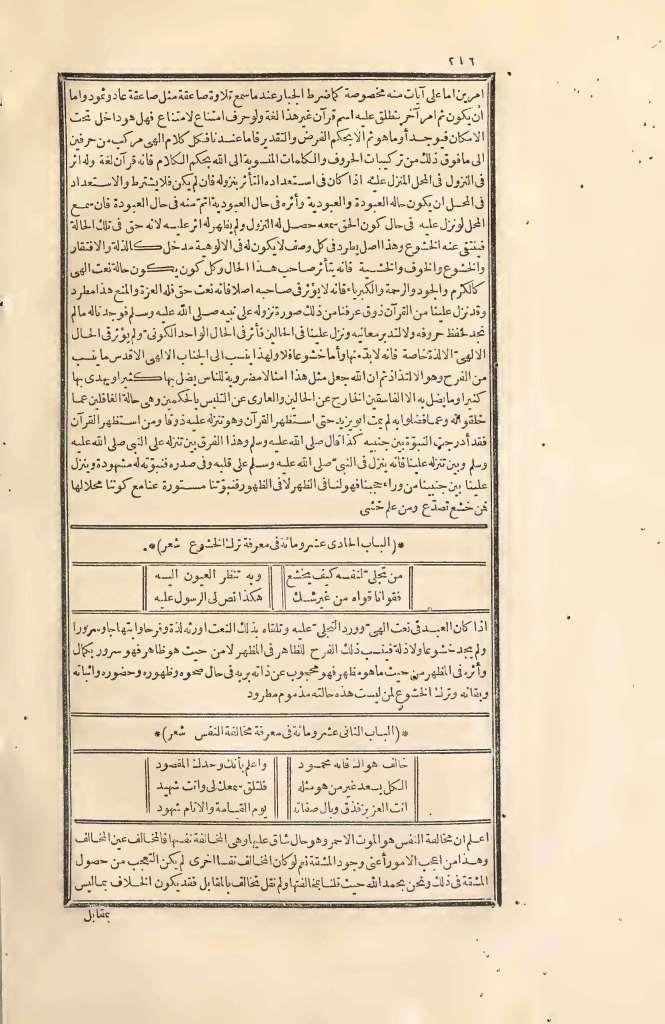 ٢١٦
امرين اما على آيات منه مخصوصة كما ضرط الجبار عندما سمع تلاوة صاعقة مثل صاعقة عاد وثمود واما
أن يكون ثم امر آخر ينطلق عليه اسم قرآن غير هذا لغة ولو حرف امتناع لامتناع فهل هو داخل تحت
الامكان فيوجد أو ما هو ثم الا بحكم الفرض والتقدير فاما عندنا فكل كلام الهى مركب من حرفين
الى ما فوق ذلك من تركيبات الحروف والكلمات المنسوبة الى الله بحكم الكلام فانه قرآن لغة وله اثر
فى النزول فى المحل المنزل عليه اذا كان فى استعداده التأثر بنزوله فان لم يكن فلا يشترط والاستعداد
فى المحل ان يكون حاله العبودة والعبودية وأثره فى حال العبودية اتم منه فى حال العبودة فان سمع
المحل لو نزل عليه فى حال كون الحق سمعه حصل له النزول ولم يظهر له اثر عليه لانه حق فى تلك الحالة
فينتفى عنه الخشوع وهذا اصل يطرد فى كل وصف لا يكون له فى الالوهية مدخل كالذلة والافتقار
والخشوع والخوف والخشية فانه يتأثر صاحب هذا الحال وكل كون يكون حالة نعت الهى
كالكرم والجود والرحمة والكبرياء فانه لا يؤثر فى صاحبه اصلا فانه نعت حق فله العزة والمنع هذا مطرد
وقد نزل علينا من القرآن ذوق عرفنا من ذلك صورة نزوله على نبيه صلى الله عليه وسلم فوجدنا له مالم
نجد لحفظ حروفه ولا لتدبر معانيه ونزل علينا فى الحالين فأثر فى الحال الواحد الكونى ولم يؤثر فى الحال
الالهى الا لذة خاصة فانه لابد منها وأما خشوعا فلا ولهذا ينسب الى الجناب الالهى الاقدس ما ينسب
من الفرح وهو الالتذاذ ثم ان الله جعل مثل هذا امثالا مضروبة للناس يضل بها كثيرا ويهدى بها
كثيرا وما يضل به الا الفاسقين الخارج عن الحالين والعارى عن التلبس بالحكمين وهى حالة الغافلين عما
خلقوا له وعما فضلوا به لم يمت ابو يزيد حتى استظهر القرآن وهو تنزله عليه ذوقا ومن استظهر القرآن
فقد أدرجت النبوّة بين جنبيه كذا قال صلى الله عليه وسلم وهذا الفرق بين تنزله على النبى صلى الله عليه
وسلم وبين تنزله علينا فانه ينزل فى النبى صلى الله عليه وسلم على قلبه وفى صدره فنبوّته له مشهودة وينزل
علينا بين جنبينا من وراء حجبنا فهو لنا فى الظهر لا فى الظهور فنبوّتنا مستورة عنا مع كوننا محلا لها
فمن خشع تصدّع ومن علم خشى
*(الباب الحادى عشر ومائة فى معرفة ترك الخشوع شعر)*
من تجلى لنفسه كيف يخشع وبه تنظر العيون اليه
فقوانا قواه من غير شك هكذا نص لى الرسول عليه
اذا كان العبد فى نعت الهى وورد التجلى عليه وتلقاه بذلك النعت اورثه لذة وفرحا وابتهاجا وسرورا
ولم يجد خشوعا ولا ذلة فينسب ذلك الفرح للظاهر فى المظهر لا من حيث هو ظاهر فهو سرور بكمال
وأثره فى المظهر من حيث ما هو مظهر فهو محجوب عن ذاته بربه فى حال صحوه وظهوره وحضوره واثباته
وبقائه وترك الخشوع لمن ليست هذه حالته مذموم مطرود
*(الباب الثانى عشر ومائة فى معرفة مخالفة النفس شعر)*
خالف هواك فانه محمود واعلم بأنك وحدك المقصود
الكل يسعد غير من هو مثله فلتلق سمعك لى وانت شهيد
انت العزيز فذق وبال صفاته يوم القيامة والانام شهود
اعلم ان مخالفة النفس هو الموت الاحمر وهو حال شاق عليها وهى المخالفة نفسها فالمخالف عين المخالف
وهذا من اعجب الامور أعنى وجود المشقة نعم لو كان المخالف نفسا اخرى لم يكن التعجب من حصول
المشقة فى ذلك ونحن بحمد الله حيث قلنا بمخالفتها ولم نقل تخالف بالمقابل فقد يكون الخلاف بما ليس
بمقابل